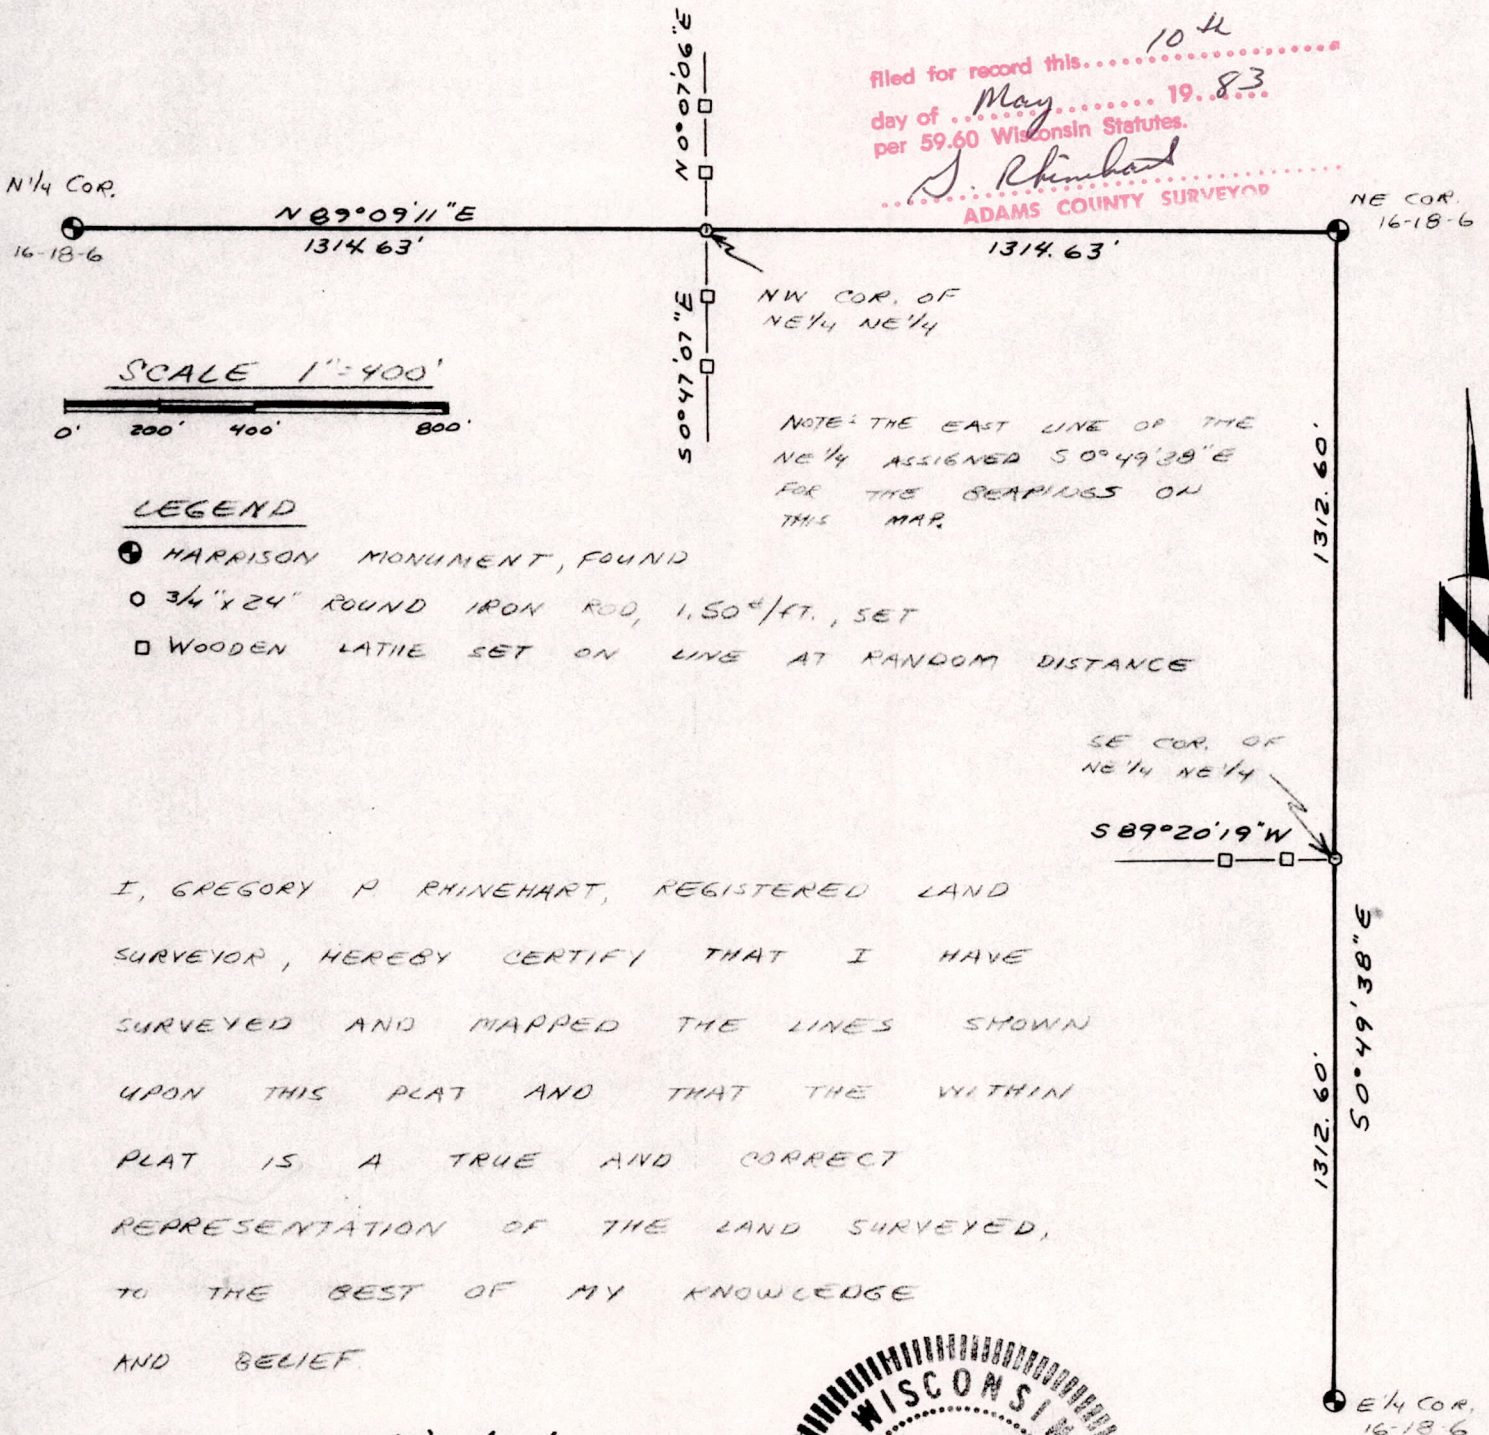 N 0°07'06"E
filed for record this 10th
day of May 19 83
per 59.60 Wisconsin Statutes.
ADAMS COUNTY SURVEYOR
N 1/4 COR.
16-18-6
N 89°09'11"E
1314.63'
1314.63'
NE COR.
16-18-6
NW COR. OF
NE 1/4 NE 1/4
S 0°47'07"E
SCALE 1"=400'
0' 200' 400' 800'
NOTE: THE EAST LINE OF THE
NE 1/4 ASSIGNED S 0°49'38"E
FOR THE BEARINGS ON
THIS MAP.
1312.60'
N
LEGEND
HARRISON MONUMENT, FOUND
3/4"x24" ROUND IRON ROD, 1.50#/FT., SET
WOODEN LATHE SET ON LINE AT RANDOM DISTANCE
SE COR. OF
NE 1/4 NE 1/4
S 89°20'19"W
S 0°49'38"E
1312.60'
I, GREGORY P. RHINEHART, REGISTERED LAND
SURVEYOR, HEREBY CERTIFY THAT I HAVE
SURVEYED AND MAPPED THE LINES SHOWN
UPON THIS PLAT AND THAT THE WITHIN
PLAT IS A TRUE AND CORRECT
REPRESENTATION OF THE LAND SURVEYED,
TO THE BEST OF MY KNOWLEDGE
AND BELIEF.
WISCONSIN
E 1/4 COR.
16-18-6